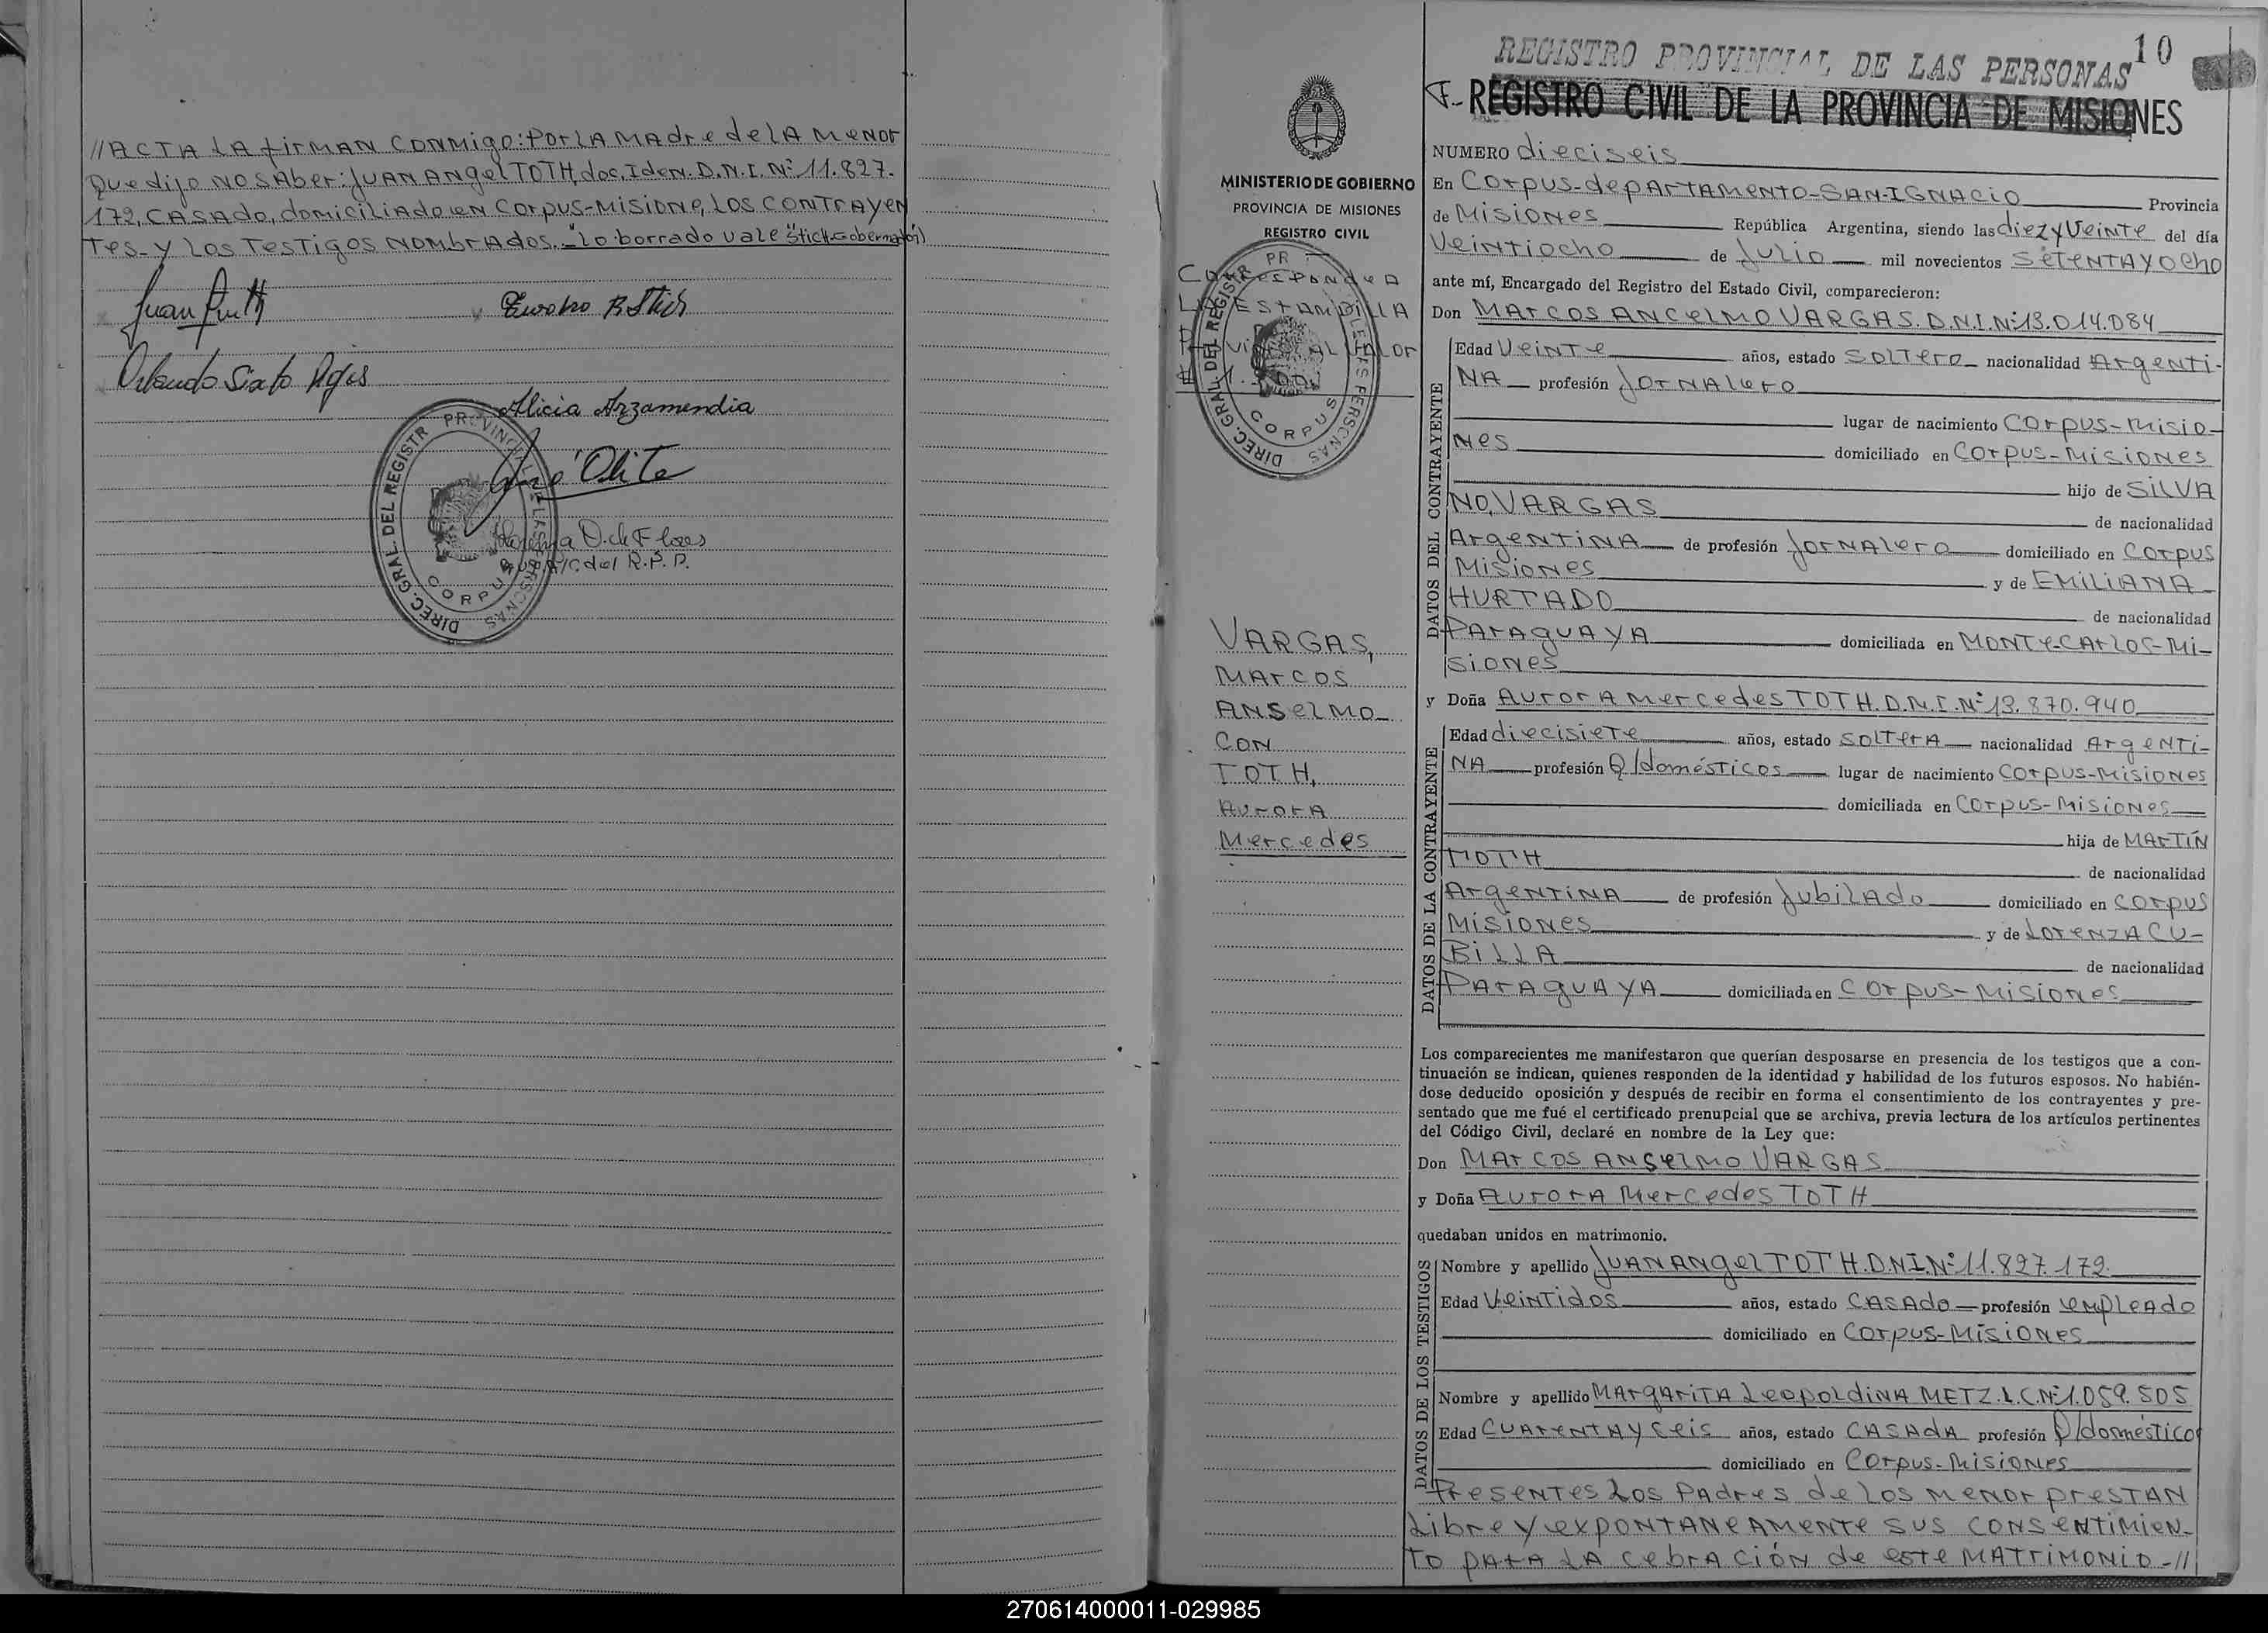 //ACTA LA firMAN CONMigo: POr LA MAdre de lA MeNOr
Que dijo NO SAber: JUAN ANgel TOTH, doc. IdeN. D.N.I. Nº 11.827.
172, CASAdo, domiciliAdo eN COrpus-Misione, LOS CONTrAyeN
Tes y Los TesTigos NOMbrAdos. "Lo borrado vale "Stich-Gobernador")
Orlando Sixto Rojas
Alicia Arzamendia
José Olite
D. de Flores
del R.P.P.
DIREC. GRAL. DEL REGISTR PROVINCIAL DE LAS PERSONAS
CORPUS
10
REGISTRO PROVINCIAL DE LAS PERSONAS
REGISTRO CIVIL DE LA PROVINCIA DE MISIONES
MINISTERIO DE GOBIERNO
PROVINCIA DE MISIONES
REGISTRO CIVIL
COrrespoNdeA
LA ESTAMpiLLA
PrOviNciAL VALOr
DIREC. GRAL. DEL REGISTR PR LAS PERSONAS
CORPUS
VARGAS,
MArCOS
ANSeLMO
CON
TOTH,
AurorA
Mercedes
NUMERO dieciseis
En COrpus-depArTAMeNTO-SAN-IGNACiO Provincia
de MiSiONeS República Argentina, siendo las diez y VeiNTe del día
VeiNTiocho de JuLiO mil novecientos SeTeNTA y Ocho
ante mí, Encargado del Registro del Estado Civil, comparecieron:
Don MArCOS ANCeLMO VARGAS. D.N.I. Nº 13.014.084
DATOS DEL CONTRAYENTE
Edad VeiNTe años, estado SOLTerO nacionalidad ArgeNTi-
NA profesión JOrNALerO
lugar de nacimiento COrpus-MisiO-
Nes domiciliado en COrpus-MisiONes
hijo de SiLVA
NO, VARGAS de nacionalidad
ArgeNTiNA de profesión JOrNALerO domiciliado en COrpus
MisiONes y de EMiLiANA
HURTADO de nacionalidad
PArAguAyA domiciliada en MONTe-CArLOS-Mi-
siONes
y Doña AurOrA MercedesTOTH. D.N.I. Nº 13.870.940
DATOS DE LA CONTRAYENTE
Edad diecisieTe años, estado SOLTerA nacionalidad ArgeNTi-
NA profesión Q/domésTicos lugar de nacimiento COrpus-MisiONes
domiciliada en COrpus-MisiONes
hija de MArTÍN
TOTH de nacionalidad
ArgeNTiNA de profesión JubiLAdo domiciliado en COrpus
MisiONes y de LOreNZA CU-
BiLLA de nacionalidad
PArAguAyA domiciliada en COrpus-MisiONes
Los comparecientes me manifestaron que querían desposarse en presencia de los testigos que a con-
tinuación se indican, quienes responden de la identidad y habilidad de los futuros esposos. No habién-
dose deducido oposición y después de recibir en forma el consentimiento de los contrayentes y pre-
sentado que me fué el certificado prenupcial que se archiva, previa lectura de los artículos pertinentes
del Código Civil, declaré en nombre de la Ley que:
Don MArCOS ANSeLMO VARGAS
y Doña AUrOrA Mercedes TOTH
quedaban unidos en matrimonio.
DATOS DE LOS TESTIGOS
Nombre y apellido JUAN ANgel TOTH. D.N.I. Nº 11.827.172
Edad VeiNTidos años, estado CASAdo profesión empLeAdo
domiciliado en COrpus-MisiONes
Nombre y apellido MArgAriTA LeopoLdiNA METZ. L.C. Nº 1.059.505
Edad CUAreNTA y seis años, estado CASAdA profesión Q/domésTicos
domiciliado en COrpus-MisiONes
PreseNTes Los PAdres de Los meNOr presTAN
Libre y expONTANeAMeNTe sus CONseNTiMieN-
TO pArA LA cebrACiÓN de esTe MATriMONiO-//
270614000011-029985